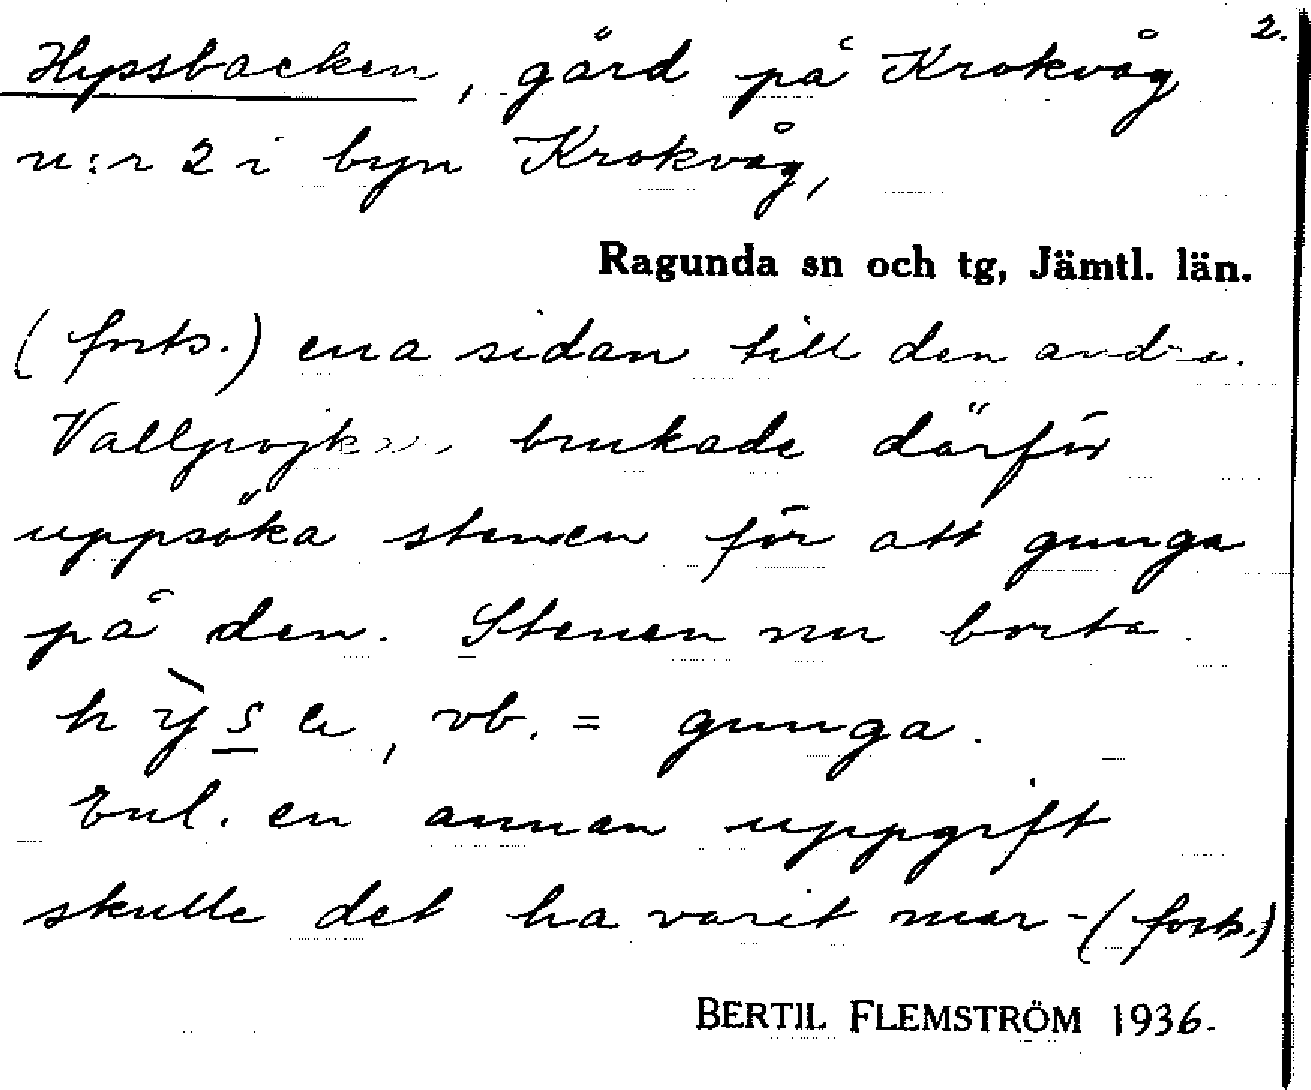 2.
Hyssbacken, gård på Krokvåg
n:r 2 i byn Krokvåg,
Ragunda sn och tg, Jämtl. län.
(forts.) ena sidan till den andra.
Vallpojkarna brukade därför
uppsöka stenen för att gunga
på den. Stenen nu borta.
vb. = gunga.
Enl. en annan uppgift
skulle det ha varit mar-(forts.)
BERTIL FLEMSTRÖM 1936.